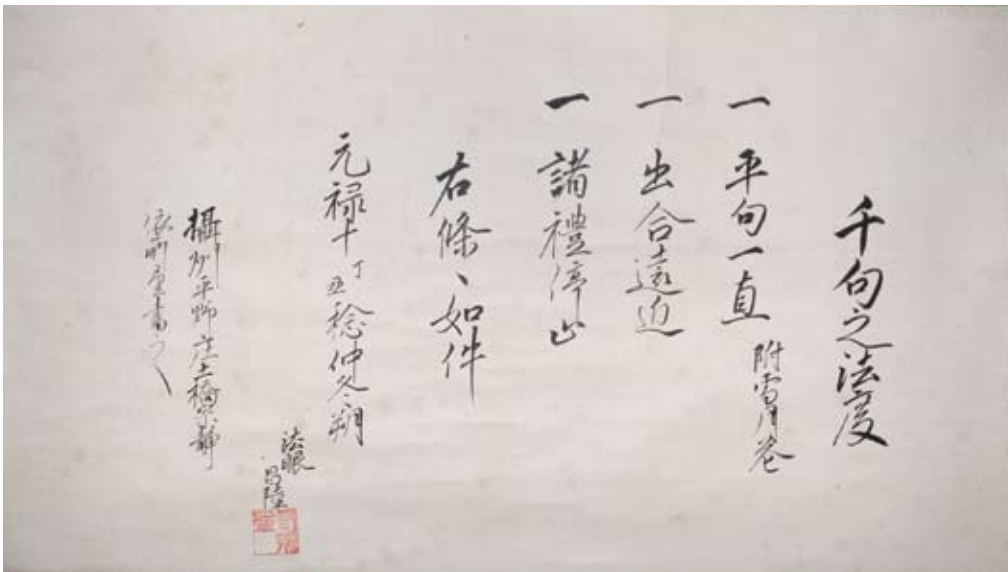 千句之法度
一 平句一直 附雪月花
一 出合遠近
一 諸禮停止
右條々如件
元禄十丁丑稔仲冬朔
法眼
昌陸
攝州平野庄土橋宗静
依所望書之